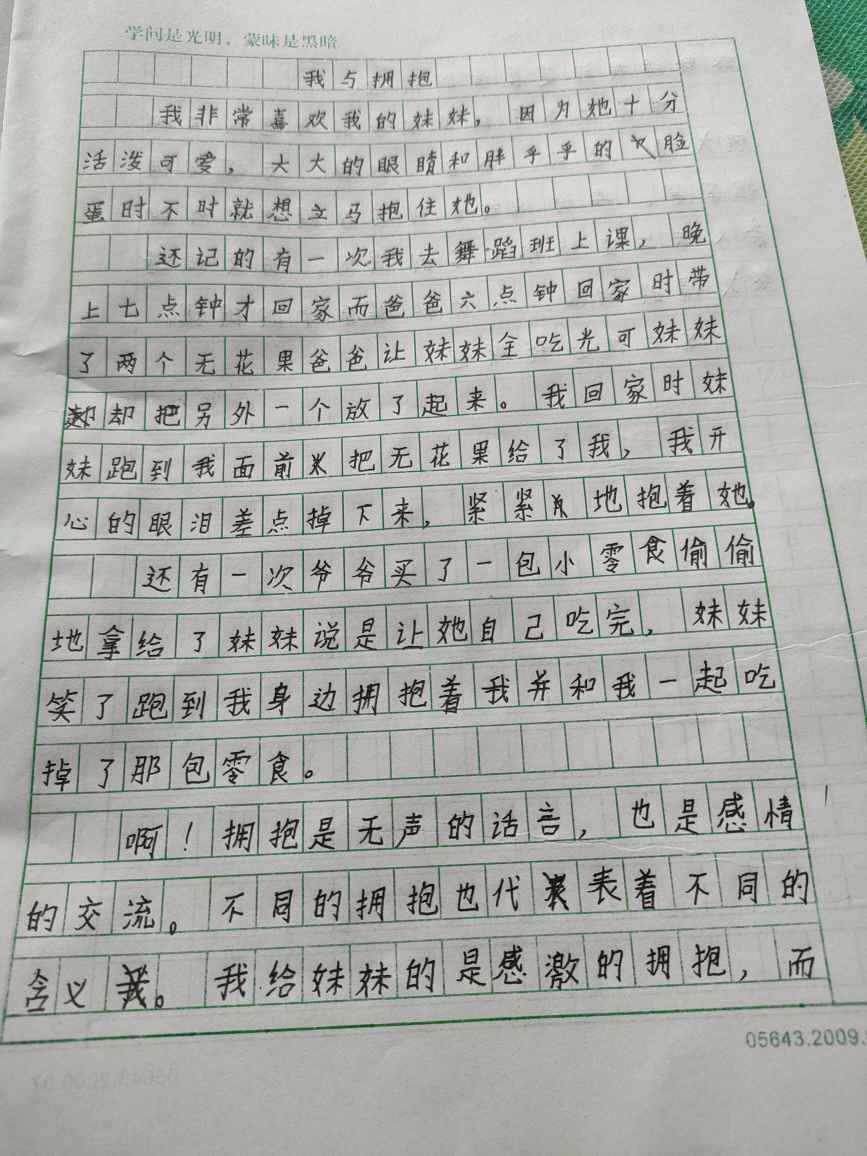 学问是光明，蒙昧是黑暗
我与拥抱
我非常喜欢我的妹妹，因为她十分
活泼可爱，大大的眼睛和胖乎乎的脸
蛋时不时就想立马抱住她。
还记的有一次我去舞蹈班上课，晚
上七点钟才回家而爸爸六点钟回家时带
了两个无花果爸爸让妹妹全吃光可妹妹
却把另外一个放了起来。我回家时妹
妹跑到我面前把无花果给了我，我开
心的眼泪差点掉下来，紧紧地抱着她。
还有一次爷爷买了一包小零食偷偷
地拿给了妹妹说是让她自己吃完，妹妹
笑了跑到我身边拥抱着我并和我一起吃
掉了那包零食。
啊！拥抱是无声的话言，也是感情
的交流。不同的拥抱也代表着不同的
含义。我给妹妹的是感激的拥抱，而
05643.2009.